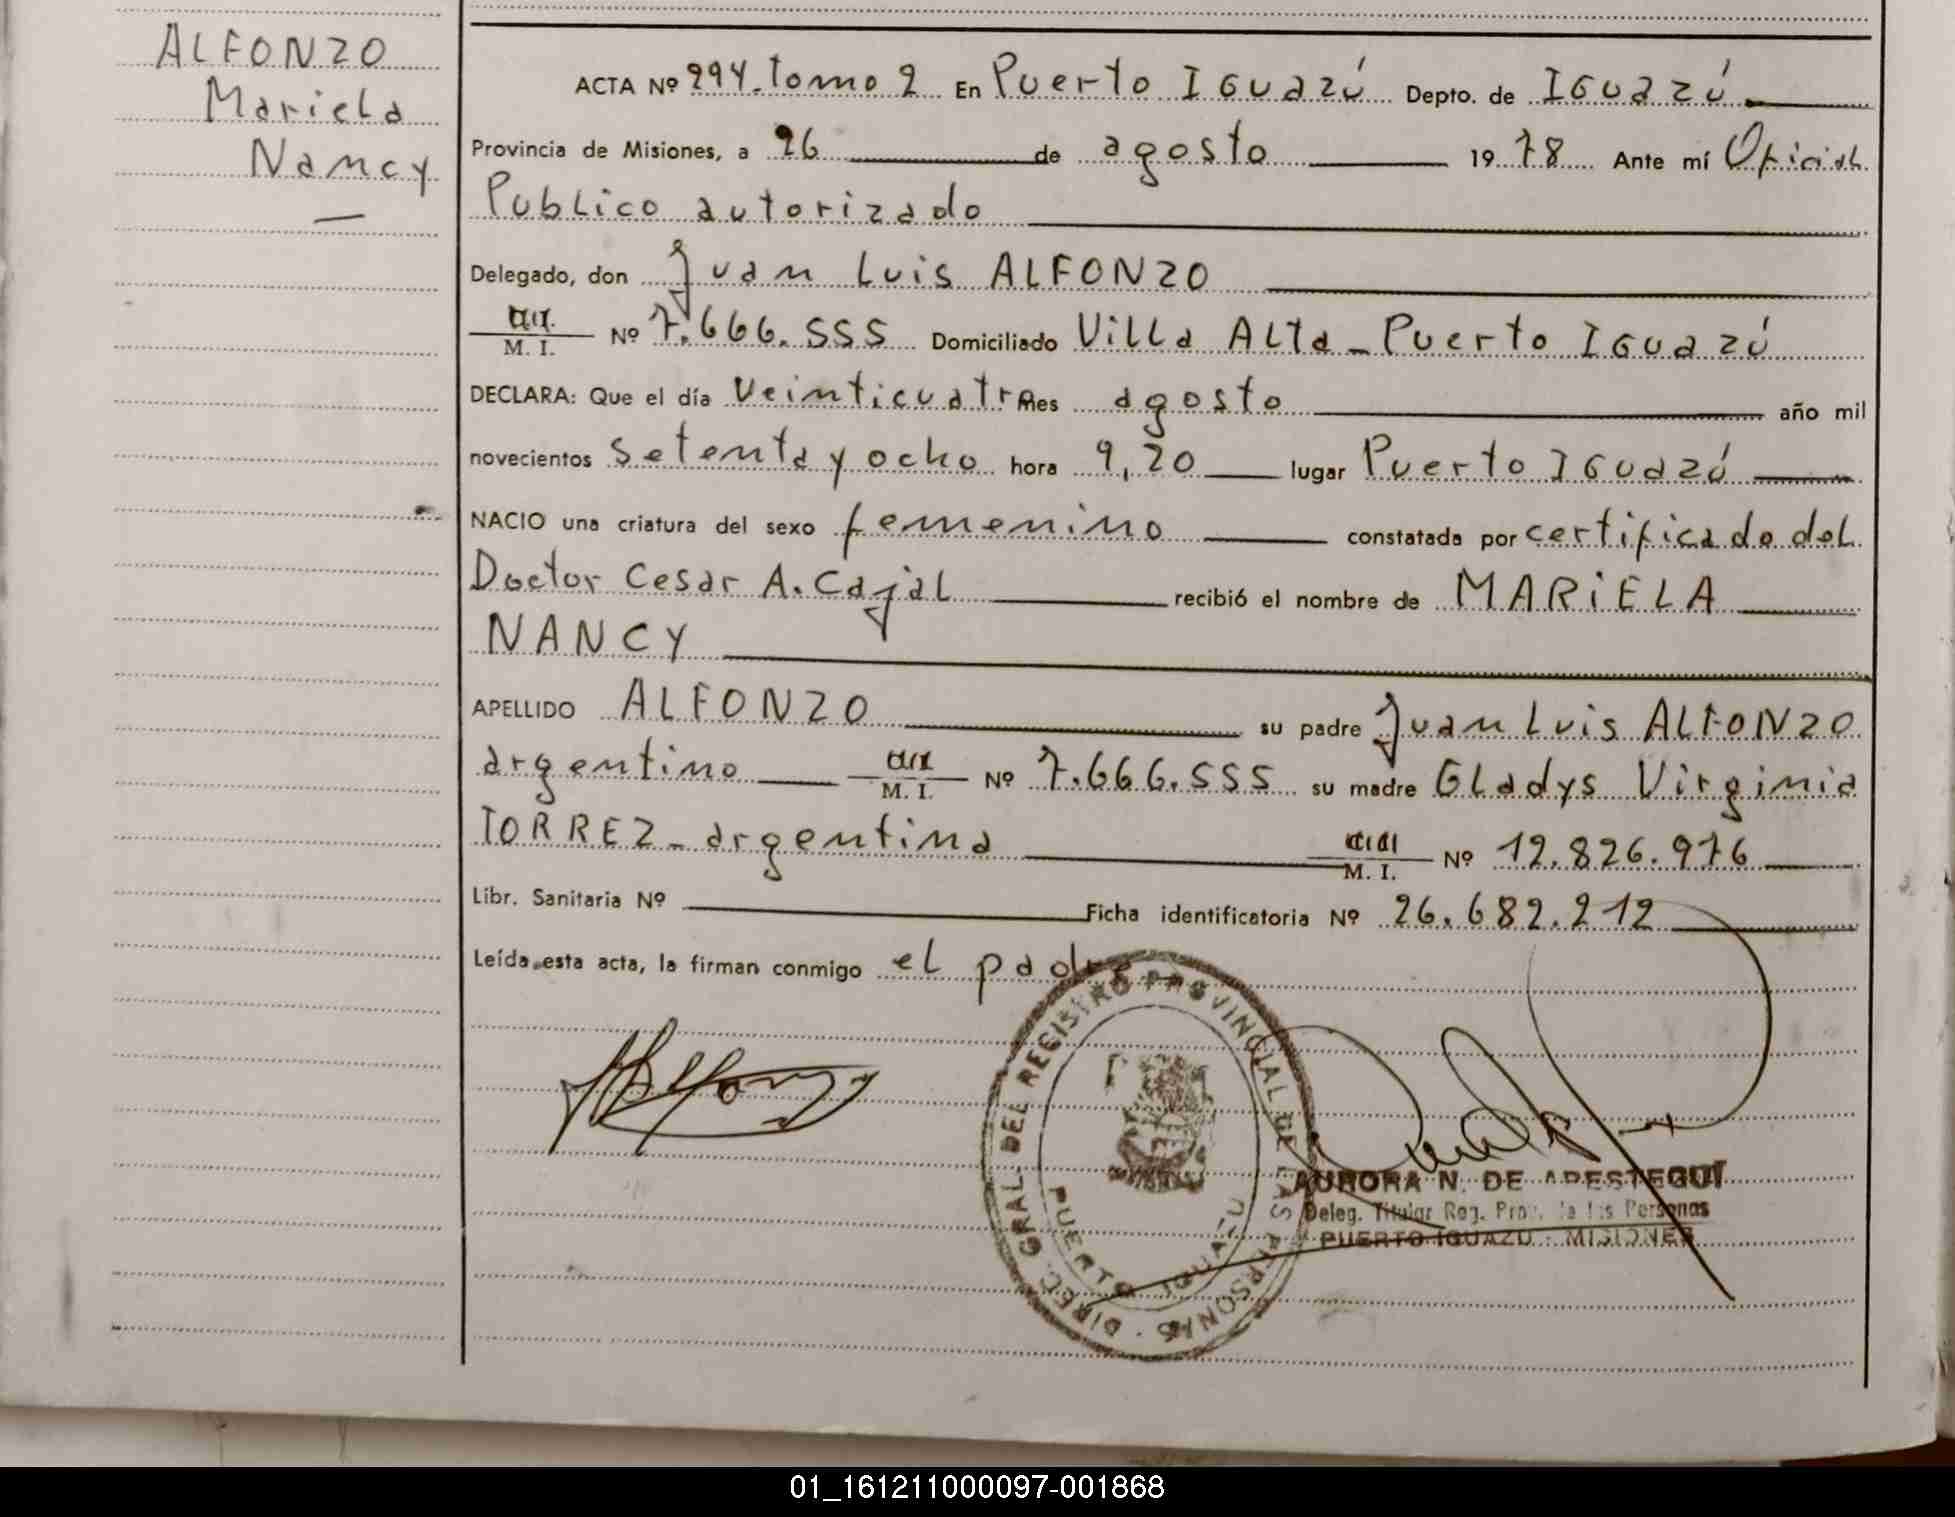 ALFONZO
Mariela
Nancy
ACTA Nº 294. Tomo 2 En Puerto Iguazú Depto. de Iguazú
Provincia de Misiones, a 26 de agosto 1978 Ante mí Oficial
Publico autorizado
Delegado, don Juan Luis ALFONZO
M. I. Nº 7.666.555 Domiciliado Villa Alta - Puerto Iguazú
DECLARA: Que el día Veinticuatro mes agosto año mil
novecientos setenta y ocho hora 9,20 lugar Puerto Iguazú
NACIO una criatura del sexo femenino constatada por certificado del
Doctor Cesar A. Cajal recibió el nombre de MARIELA
NANCY
APELLIDO ALFONZO su padre Juan Luis ALFONZO
argentino M. I. Nº 7.666.555 su madre Gladys Virginia
TORREZ - argentina M. I. Nº 12.826.976
Libr. Sanitaria Nº Ficha identificatoria Nº 26.682.212
Leída esta acta, la firman conmigo el padre
DIREC. GRAL. DEL REGISTRO PROVINCIAL DE LAS PERSONAS
PUERTO IGUAZU
AURORA N. DE ARESTEGUI
Deleg. Titular Reg. Prov. de las Personas
PUERTO IGUAZU - MISIONES
01_161211000097-001868